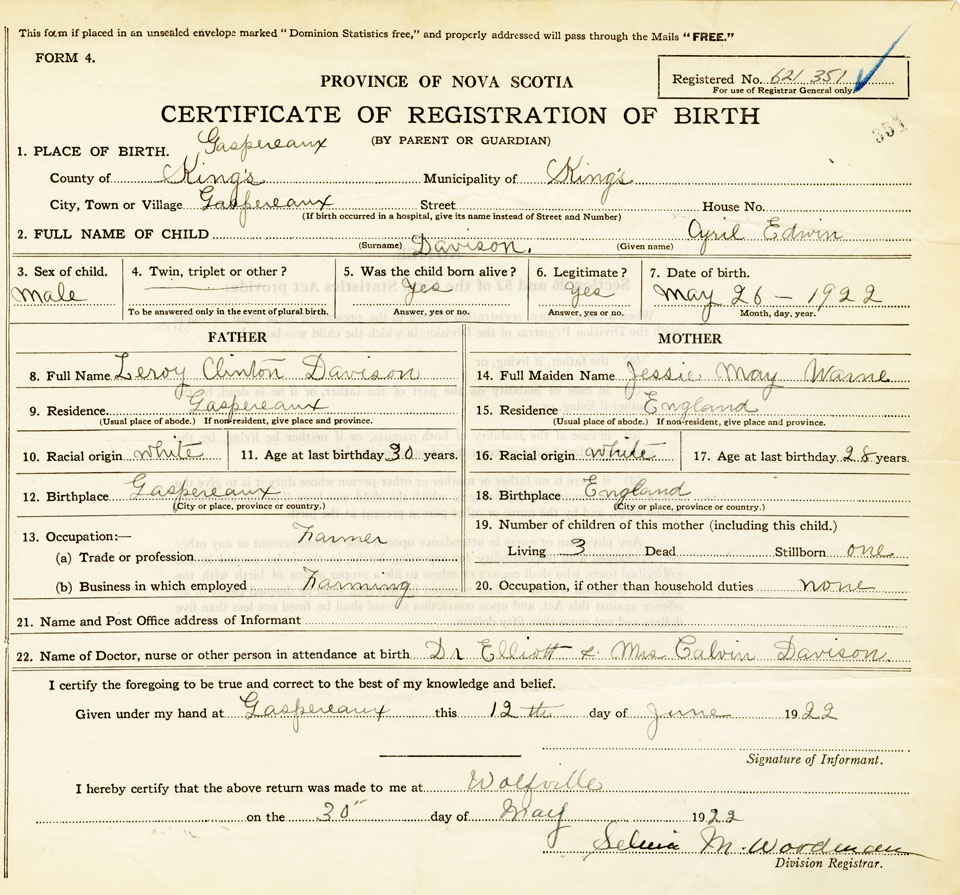 This form if placed in an unsealed envelope marked "Dominion Statistics free," and properly addressed will pass through the Mails "FREE."
FORM 4.
Registered No. 621 351
For use of Registrar General only.
PROVINCE OF NOVA SCOTIA
CERTIFICATE OF REGISTRATION OF BIRTH
351
(BY PARENT OR GUARDIAN)
1. PLACE OF BIRTH. Gaspereaux
County of King's Municipality of King's
City, Town or Village Gaspereaux Street House No.
(If birth occurred in a hospital, give its name instead of Street and Number)
2. FULL NAME OF CHILD Davison. Cyril Edwin
(Surname) (Given name)
3. Sex of child. 4. Twin, triplet or other? 5. Was the child born alive? 6. Legitimate? 7. Date of birth.
Male Yes Yes May 26 - 1922
To be answered only in the event of plural birth. Answer, yes or no. Answer, yes or no. Month, day, year.
FATHER MOTHER
8. Full Name Leroy Clinton Davison 14. Full Maiden Name Jessie May Warne
9. Residence. Gaspereaux 15. Residence England
(Usual place of abode.) If non-resident, give place and province. (Usual place of abode.) If non-resident, give place and province.
10. Racial origin white 11. Age at last birthday 30 years. 16. Racial origin white 17. Age at last birthday 28 years.
12. Birthplace Gaspereaux 18. Birthplace England
(City or place, province or country.) (City or place, province or country.)
13. Occupation:— Farmer 19. Number of children of this mother (including this child.)
(a) Trade or profession Living 3 Dead Stillborn one
(b) Business in which employed Farming 20. Occupation, if other than household duties none
21. Name and Post Office address of Informant
22. Name of Doctor, nurse or other person in attendance at birth Dr Elliott & Mrs Calvin Davison.
I certify the foregoing to be true and correct to the best of my knowledge and belief.
Given under my hand at Gaspereaux this 12th day of June 1922
Signature of Informant.
I hereby certify that the above return was made to me at Wolfville
on the 30" day of May 1922
M. Woodman
Division Registrar.